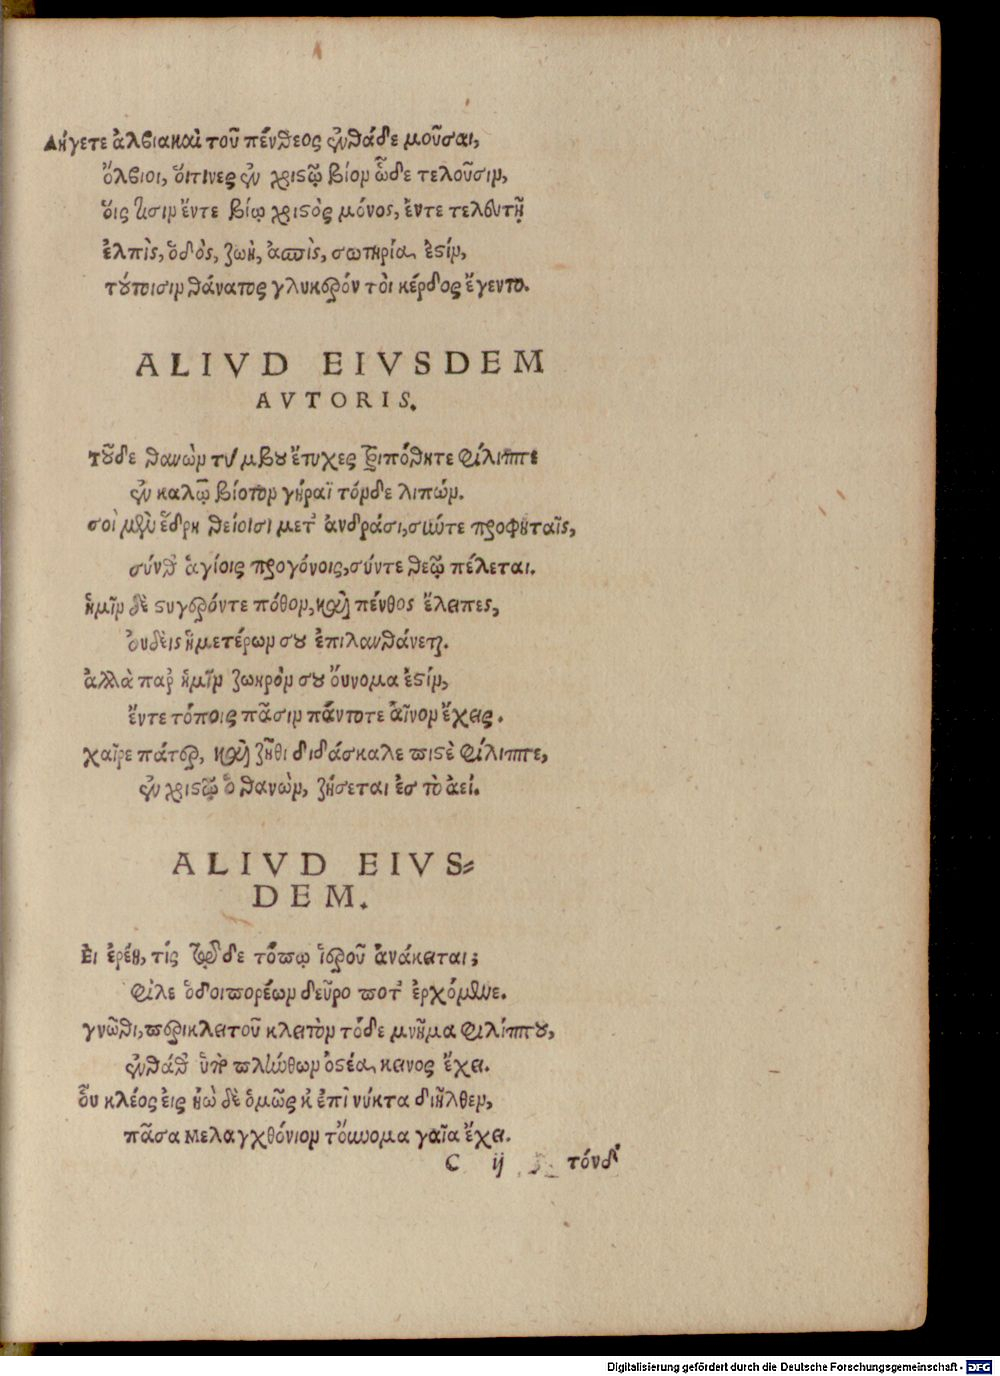 Λήγετε ἀλβιακαὶ τοῦ πένθεος ἐνθάδε μοῦσαι,
ὄλβιοι, ὅιτινες ἐν χριστῷ βίον ὧδε τελοῦσιν,
ὅις εἰσιν ἔντε βίῳ χριστὸς μόνος, ἔντε τελευτῇ
ἐλπὶς, ὁδὸς, ζωὴ, ἀσπὶς, σωτηρία, ἐστίν,
τούτοισιν θάνατος γλυκερόν τὸι κέρδος ἔγεντο.
ALIVD EIVSDEM
AVTORIS.
Τοῦδε θανὼν τύμβου ἔτυχες τριπόθητε Φίλιππε
ἐν καλῷ βίοτον γήραϊ τόνδε λιπών.
σοὶ μὲν ἕδρη θείοισι μετ' ἀνδράσι, σιώτε προφήταῖς,
σύνθ' ἁγίοις προγόνοις, σύντε θεῷ πέλεται.
ἡμῖν δὲ στυγερόντε πόθον, καὶ πένθος ἔλειπες,
ὀυδεὶς ἡμετέρων σου ἐπιλανθάνεται.
ἀλλὰ παρ' ἡμῖν ζωηρὸν σου ὄυνομα ἐστίν,
ἔντε τόποις πᾶσιν πάντοτε ἀῖνον ἔχεις.
χαῖρε πάτερ, καὶ ζῆθι διδάσκαλε πιστὲ Φίλιππε,
ἐν χριστῷ ὃ θανὼν, ζήσεται ἐσ τὸ ἀεί.
ALIVD EIVS-
DEM.
Ἐι ἐρέῃ, τίς τῷδε τόπῳ ἱεροῦ ἀνάκειται;
Φίλε ὁδοιπορέων δεῦρο ποτ' ἐρχόμενε.
γνῶθι, περικλειτοῦ κλειτὸν τόδε μνῆμα Φιλίππου,
ἐνθάδ' ὑπὸ πλίνθων ὀστέα, κεινος ἔχει.
ὃυ κλέος ἐις ἠὼ δὲ ὁμῶς κ' ἐπὶ νύκτα διῆλθεν,
πᾶσα Μελαγχθόνιον τὄυνομα γαῖα ἔχει.
C ij τόνδ'
Digitalisierung gefördert durch die Deutsche Forschungsgemeinschaft - DFG